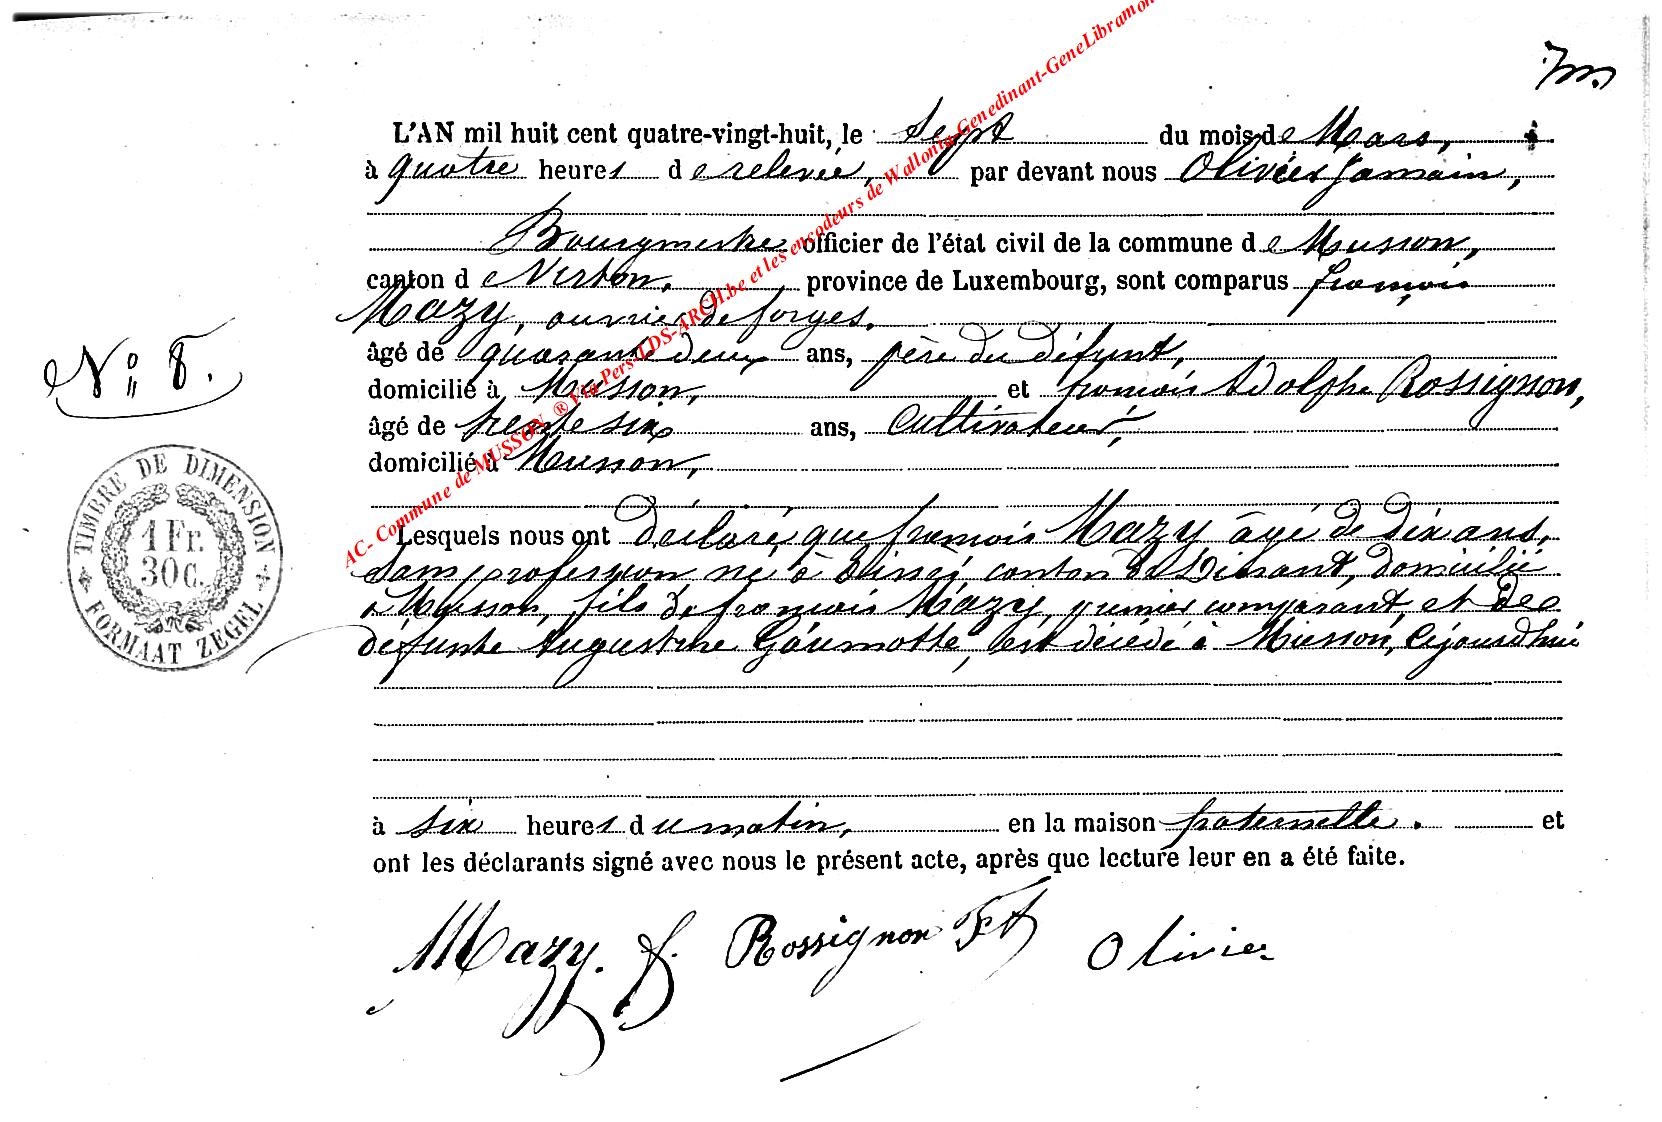 7m
L'AN mil huit cent quatre-vingt-huit, le Sept du mois de Mars,
à quatre heures de relevée, par devant nous Olivier Jamain,
Bourgmestre officier de l'état civil de la commune de Musson,
canton de Virton, province de Luxembourg, sont comparus françois
Mazy, ouvrier de forges,
âgé de quarante deux ans, père du défunt,
domicilié à Musson, et françois Adolphe Rossignon,
âgé de trente six ans, Cultivateur,
domicilié à Musson,
Lesquels nous ont Déclaré, que françois Mazy âgé de dix ans,
Sans profession né à canton de Dinant, domicilié
à Musson, fils de françois Mazy, premier comparant, et de
défunte Augustine Gaumotte, est décédé à Musson, Cejourd'hui
à six heures du matin, en la maison paternelle. et
ont les déclarants signé avec nous le présent acte, après que lecture leur en a été faite.
Mazy. f. Rossignon F A Olivier
No 8.
TIMBRE DE DIMENSION
1 Fr.
30 C.
FORMAAT ZEGEL
AC- Commune de MUSSON ® Via Pers-LDS-ARCH.be et les encodeurs de Wallonia-Genedinant-GeneLibramon